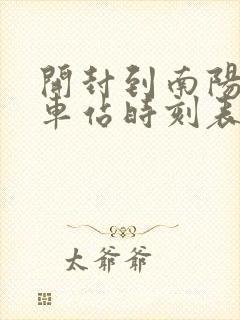 開封到南陽
車佔時刻表
太爺爺